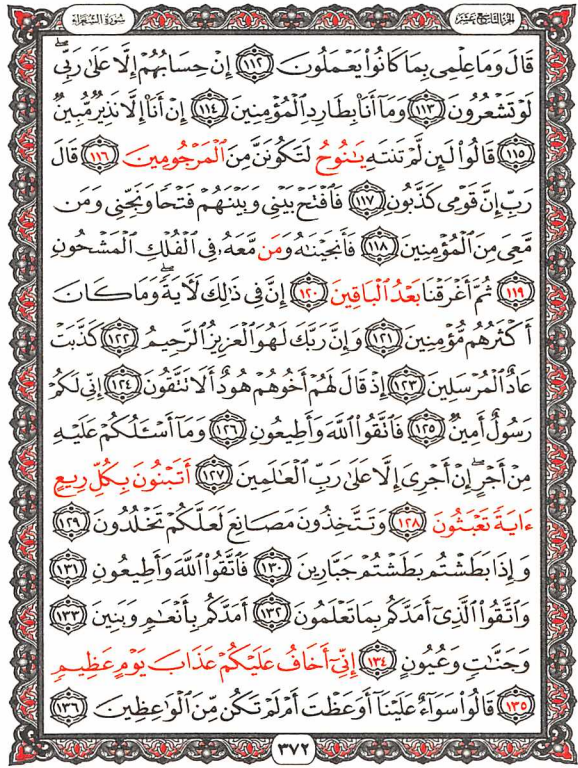 سُورَةُ الشُّعَرَاءِ الجُزءُ التَّاسِعُ عَشَرَ
قَالَ وَمَا عِلْمِى بِمَا كَانُوا۟ يَعْمَلُونَ ١١٢ إِنْ حِسَابُهُمْ إِلَّا عَلَىٰ رَبِّى ۖ
لَوْ تَشْعُرُونَ ١١٣ وَمَآ أَنَا۠ بِطَارِدِ ٱلْمُؤْمِنِينَ ١١٤ إِنْ أَنَا۠ إِلَّا نَذِيرٌ مُّبِينٌ
١١٥ قَالُوا۟ لَئِن لَّمْ تَنتَهِ يَـٰنُوحُ لَتَكُونَنَّ مِنَ ٱلْمَرْجُومِينَ ١١٦ قَالَ
رَبِّ إِنَّ قَوْمِى كَذَّبُونِ ١١٧ فَٱفْتَحْ بَيْنِى وَبَيْنَهُمْ فَتْحًا وَنَجِّنِى وَمَن
مَّعِىَ مِنَ ٱلْمُؤْمِنِينَ ١١٨ فَأَنجَيْنَـٰهُ وَمَن مَّعَهُۥ فِى ٱلْفُلْكِ ٱلْمَشْحُونِ
١١٩ ثُمَّ أَغْرَقْنَا بَعْدُ ٱلْبَاقِينَ ١٢٠ إِنَّ فِى ذَٰلِكَ لَـَٔايَةً ۖ وَمَا كَانَ
أَكْثَرُهُم مُّؤْمِنِينَ ١٢١ وَإِنَّ رَبَّكَ لَهُوَ ٱلْعَزِيزُ ٱلرَّحِيمُ ١٢٢ كَذَّبَتْ
عَادٌ ٱلْمُرْسَلِينَ ١٢٣ إِذْ قَالَ لَهُمْ أَخُوهُمْ هُودٌ أَلَا تَتَّقُونَ ١٢٤ إِنِّى لَكُمْ
رَسُولٌ أَمِينٌ ١٢٥ فَٱتَّقُوا۟ ٱللَّهَ وَأَطِيعُونِ ١٢٦ وَمَآ أَسْـَٔلُكُمْ عَلَيْهِ
مِنْ أَجْرٍ ۖ إِنْ أَجْرِىَ إِلَّا عَلَىٰ رَبِّ ٱلْعَـٰلَمِينَ ١٢٧ أَتَبْنُونَ بِكُلِّ رِيعٍ
ءَايَةً تَعْبَثُونَ ١٢٨ وَتَتَّخِذُونَ مَصَانِعَ لَعَلَّكُمْ تَخْلُدُونَ ١٢٩
وَإِذَا بَطَشْتُم بَطَشْتُمْ جَبَّارِينَ ١٣٠ فَٱتَّقُوا۟ ٱللَّهَ وَأَطِيعُونِ ١٣١
وَٱتَّقُوا۟ ٱلَّذِىٓ أَمَدَّكُم بِمَا تَعْلَمُونَ ١٣٢ أَمَدَّكُم بِأَنْعَـٰمٍ وَبَنِينَ ١٣٣
وَجَنَّـٰتٍ وَعُيُونٍ ١٣٤ إِنِّىٓ أَخَافُ عَلَيْكُمْ عَذَابَ يَوْمٍ عَظِيمٍ
١٣٥ قَالُوا۟ سَوَآءٌ عَلَيْنَآ أَوَعَظْتَ أَمْ لَمْ تَكُن مِّنَ ٱلْوَٰعِظِينَ ١٣٦
٣٧٢